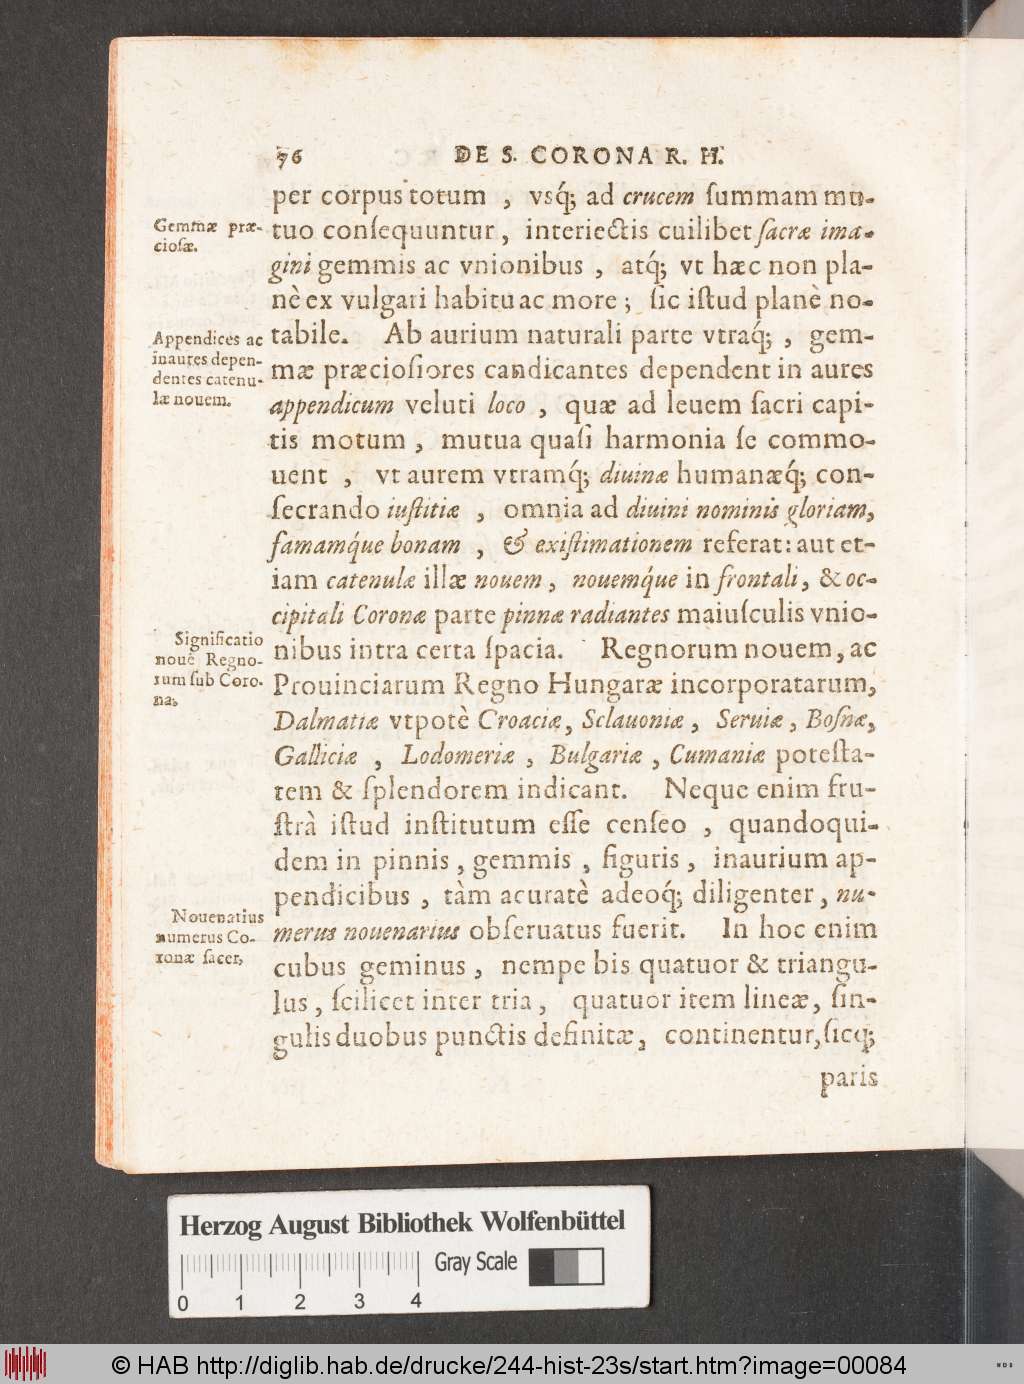 76 DE S. CORONA R. H.
per corpus totum , vsq́; ad crucem ſummam mu-
Gemmæ præ-
cioſæ.
tuo conſequuntur , interiectis cuilibet ſacræ ima-
gini gemmis ac vnionibus , atq́; vt hæc non pla-
nè ex vulgari habitu ac more ; ſic iſtud planè no-
Appendices ac
inaures depen-
dentes catenu-
læ nouem.
tabile. Ab aurium naturali parte vtraq́; , gem-
mæ præcioſiores candicantes dependent in aures
appendicum veluti loco , quæ ad leuem ſacri capi-
tis motum , mutua quaſi harmonia ſe commo-
uent , vt aurem vtramq́; diuinæ humanæq́; con-
ſecrando iuſtitiæ , omnia ad diuini nominis gloriam,
famamq́ue bonam , & exiſtimationem referat: aut et-
iam catenulæ illæ nouem , nouemq́ue in frontali, & oc-
cipitali Coronæ parte pinnæ radiantes maiuſculis vnio-
Significatio
nouē Regno-
rum ſub Coro-
na,
nibus intra certa ſpacia. Regnorum nouem, ac
Prouinciarum Regno Hungaræ incorporatarum,
Dalmatiæ vtpotè Croaciæ, Sclauoniæ , Seruiæ , Boſnæ,
Galliciæ , Lodomeriæ , Bulgariæ , Cumaniæ poteſta-
tem & ſplendorem indicant. Neque enim fru-
ſtrà iſtud inſtitutum eſſe cenſeo , quandoqui-
dem in pinnis , gemmis , figuris , inaurium ap-
pendicibus , tàm acuratè adeoq́; diligenter , nu-
Nouenarius
numerus Co-
ronæ ſacer,
merus nouenarius obſeruatus fuerit. In hoc enim
cubus geminus , nempe bis quatuor & triangu-
lus , ſcilicet inter tria , quatuor item lineæ, ſin-
gulis duobus punctis definitæ, continentur, ſicq́;
paris
Herzog August Bibliothek Wolfenbüttel
Gray Scale
0 1 2 3 4
© HAB http://diglib.hab.de/drucke/244-hist-23s/start.htm?image=00084